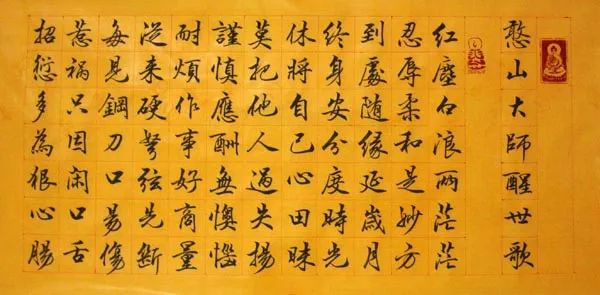 憨山大師醒世歌
紅塵白浪兩茫茫
忍辱柔和是妙方
到處随緣延歲月
终身安分度時光
休將自己心田昧
莫把他人過失揚
謹慎應酬無懊惱
耐煩作事好商量
從来硬弩弦先斷
每見鋼刀口易傷
惹禍只因闲口舌
招愆多為狠心腸